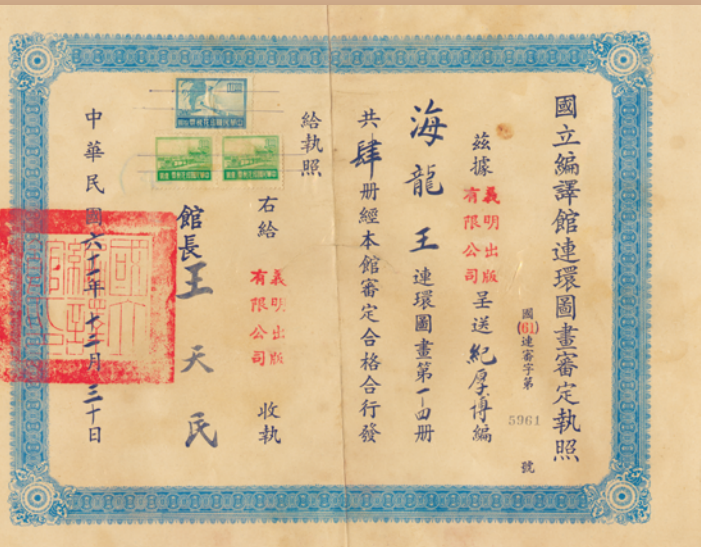 國立編譯館連環圖畫審定執照
國(61)連審字第5961號
茲據義明出版有限公司呈送紀厚博編
海龍王連環圖畫第一－四册
共肆册經本館審定合格合行發
給執照
右給義明出版有限公司收執
館長王天民
中華民國六十一年十二月三十日